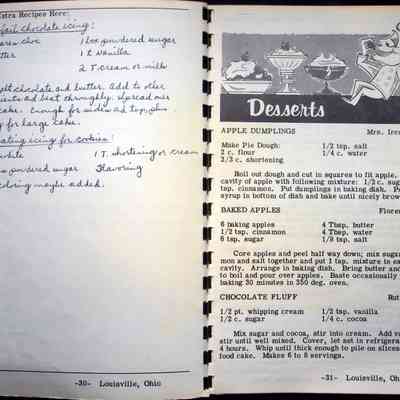 xtra Recipes Here:
fail chocolate icing:
1 box powdered sugar
1 t vanilla
2 T cream or milk
lt chocolate and butter. Add to other
and beat throughly. Spread over
cake. Enough for sides and top, also
for large cake.
ating icing for cookies:
white
1 T. shortening or cream
powdered sugar
Flavoring
coloring maybe added.
-30- Louisville, Ohio
Desserts
APPLE DUMPLINGS
Mrs. Ire
Make Pie Dough:
1/2 tsp. salt
2 c. flour
1/4 c. water
2/3 c. shortening
Roll out dough and cut in squares to fit apple.
cavity of apple with following mixture: 1/2 c. sug
tsp. cinnamon. Put dumplings in baking dish. P
syrup in bottom of dish and bake until nicely brow
BAKED APPLES
Floren
6 baking apples
4 Tbsp. butter
1/2 tsp. cinnamon
4 Tbsp. water
6 tsp. sugar
1/8 tsp. salt
Core apples and peel half way down; mix sugar
mon and salt together and put 1 tsp. mixture in ea
cavity. Arrange in baking dish. Bring butter and
to boil and pour over apples. Baste occasionally
baking 30 minutes in 350 deg. oven.
CHOCOLATE FLUFF
Rut
1/2 pt. whipping cream
1/2 tsp. vanilla
1/2 c. sugar
1/4 c. cocoa
Mix sugar and cocoa, stir into cream. Add va
stir until well mixed. Cover, let set in refrigerat
4 hours. Whip until thick enough to pile on slices
food cake. Makes 6 to 8 servings.
-31- Louisville, Oh